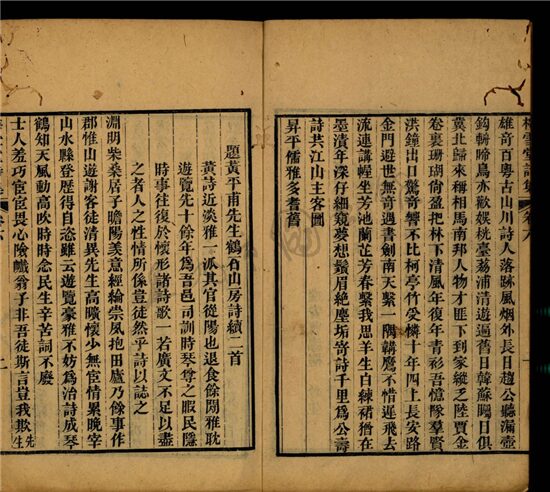 雄奇百粵古山川詩人落跡風烟外長日趙公聽漏壺
鈎輈啼鳥亦歡娛桄臺荔浦清遊遍舊日韓蘇躅日俱
冀北歸來稱相馬南邦人物才匪下到家縱乏陸賈金
卷裏珊瑚倘盈把林下清風年復年青衫吾憶隊羣賢
洪鐘出日驚奇響不比柯亭竹受憐十年四上長安路
金門避世無奇遇書劍南天繫一隅韝鷹不惜遲飛去
流連講幄坐芳池蘭芷芬春繫我思羊生白練裙猶在
墨漬年深仔細窺夢想鬚眉絶塵垢寄詩千里爲公壽
詩共江山主客圖
昇平儒雅多耆舊
題黃平甫先生鶴石山房詩續二首
黃詩近淡雅一派其官從陽也退食餘閒雅耽
遊覽先十餘年爲吾邑司訓時琴尊之暇民隱
時事往復於懷形諸詩歌一若廣文不足以盡
之者人之性情所係豈徒然乎詩以誌之
淵明柴桑居子瞻陽羨意經綸崇夙抱田廬乃餘事作
郡惟山遊謝客徒清異先生高曠懷少無宦情累晚宰
山水縣登歷得自恣雖云遊覽豪雅不妨爲治詩成琴
鶴知天風動高吹時時念民生辛苦詞不廢
士人羞巧宦宦畏心險巇翁子非吾徒斯言豈我欺先生